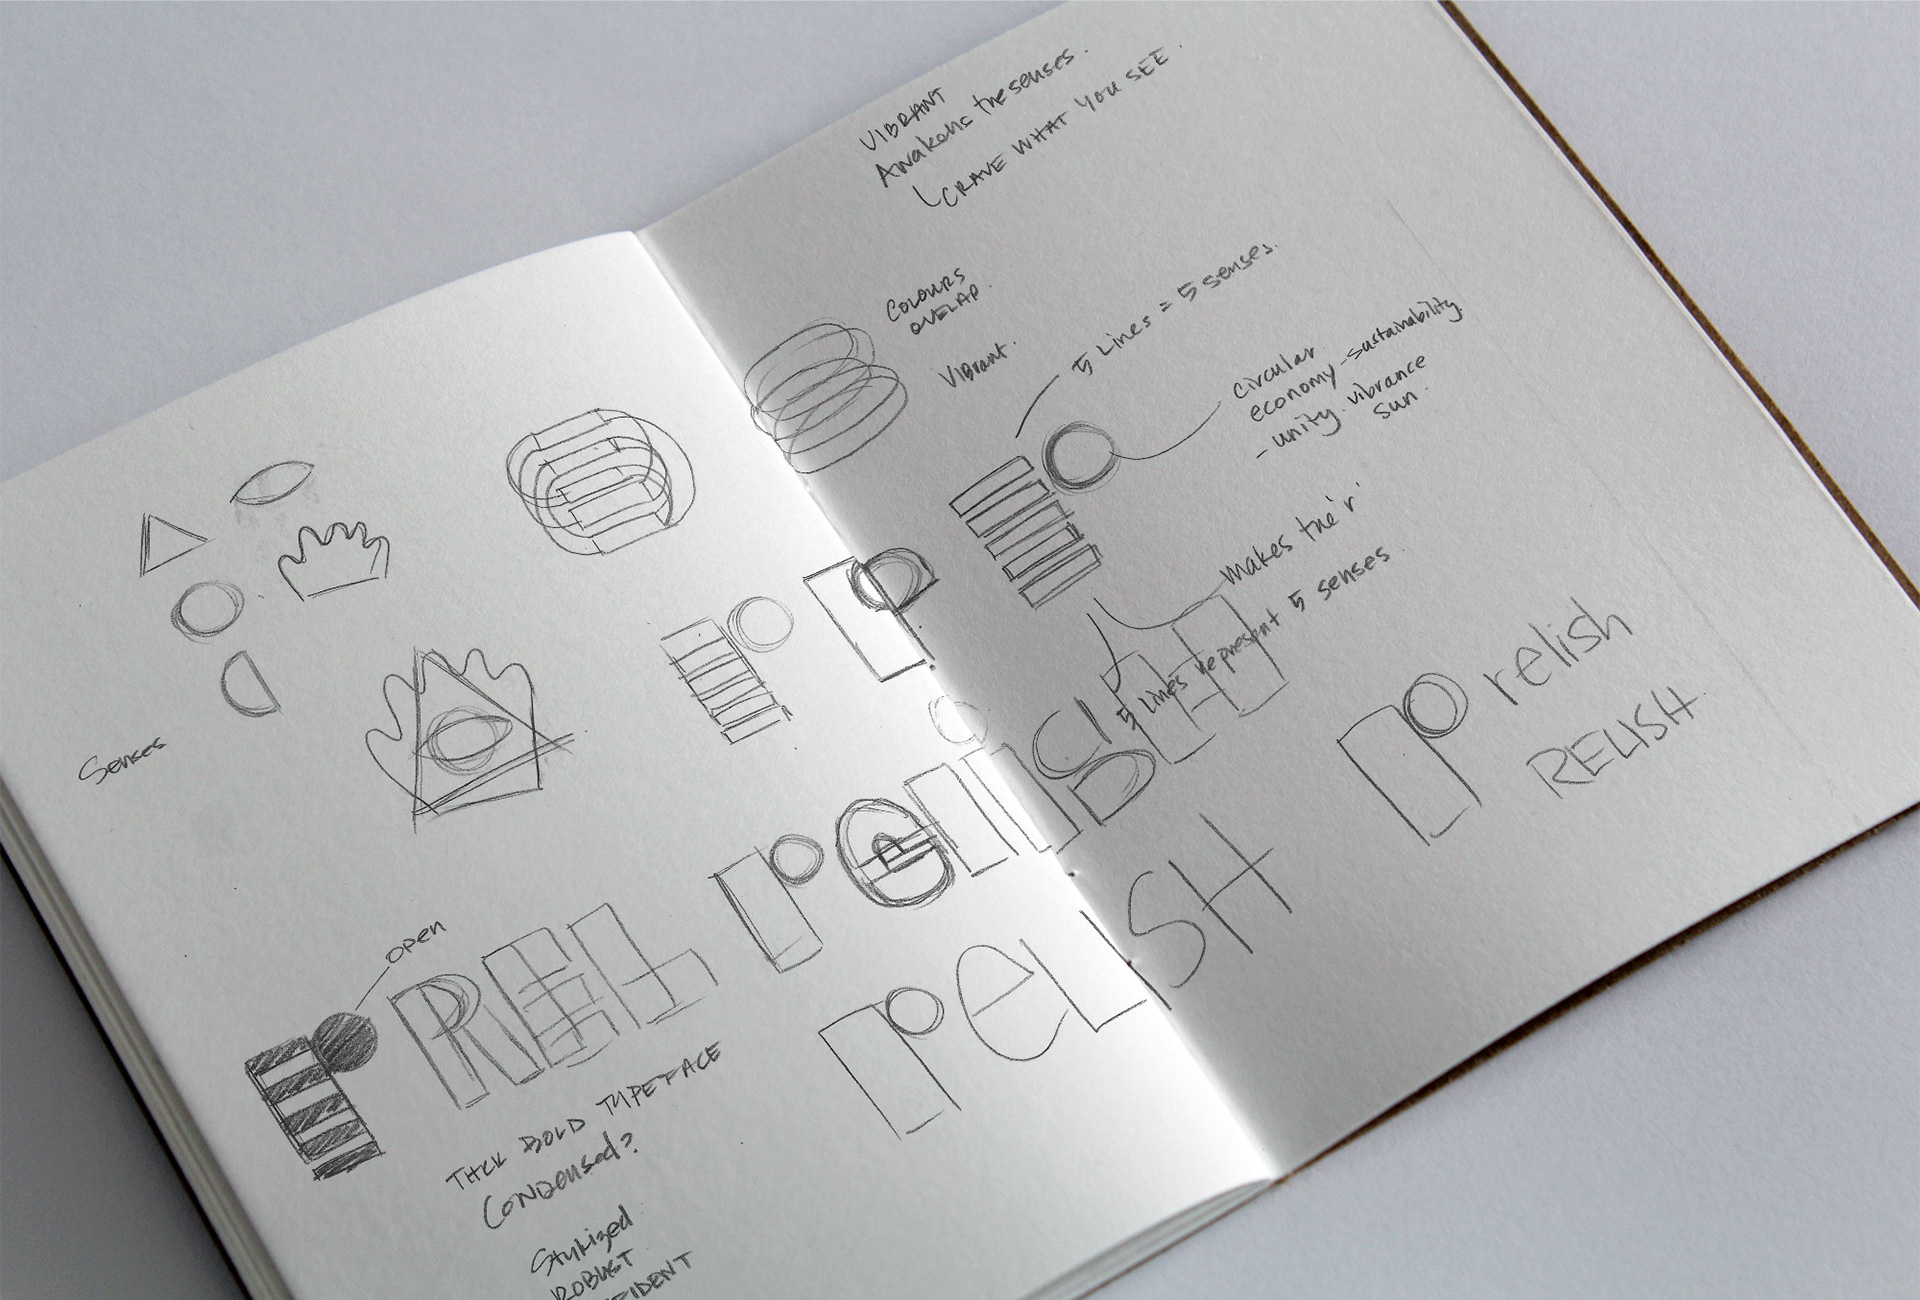 VIBRANT
Awakens the senses.
CRAVE WHAT YOU SEE.
COLOURS
OVERLAP.
VIBrant.
5 Lines = 5 senses.
circular
economy - sustainability.
- unity. vibrance
sun
makes the 'r'
5 Lines represent 5 senses.
relish
RELISH
Senses
relISH
reLISH
open
REL
THCK BOLD TYPEFACE
CONDensed?
Stylized
ROBUST